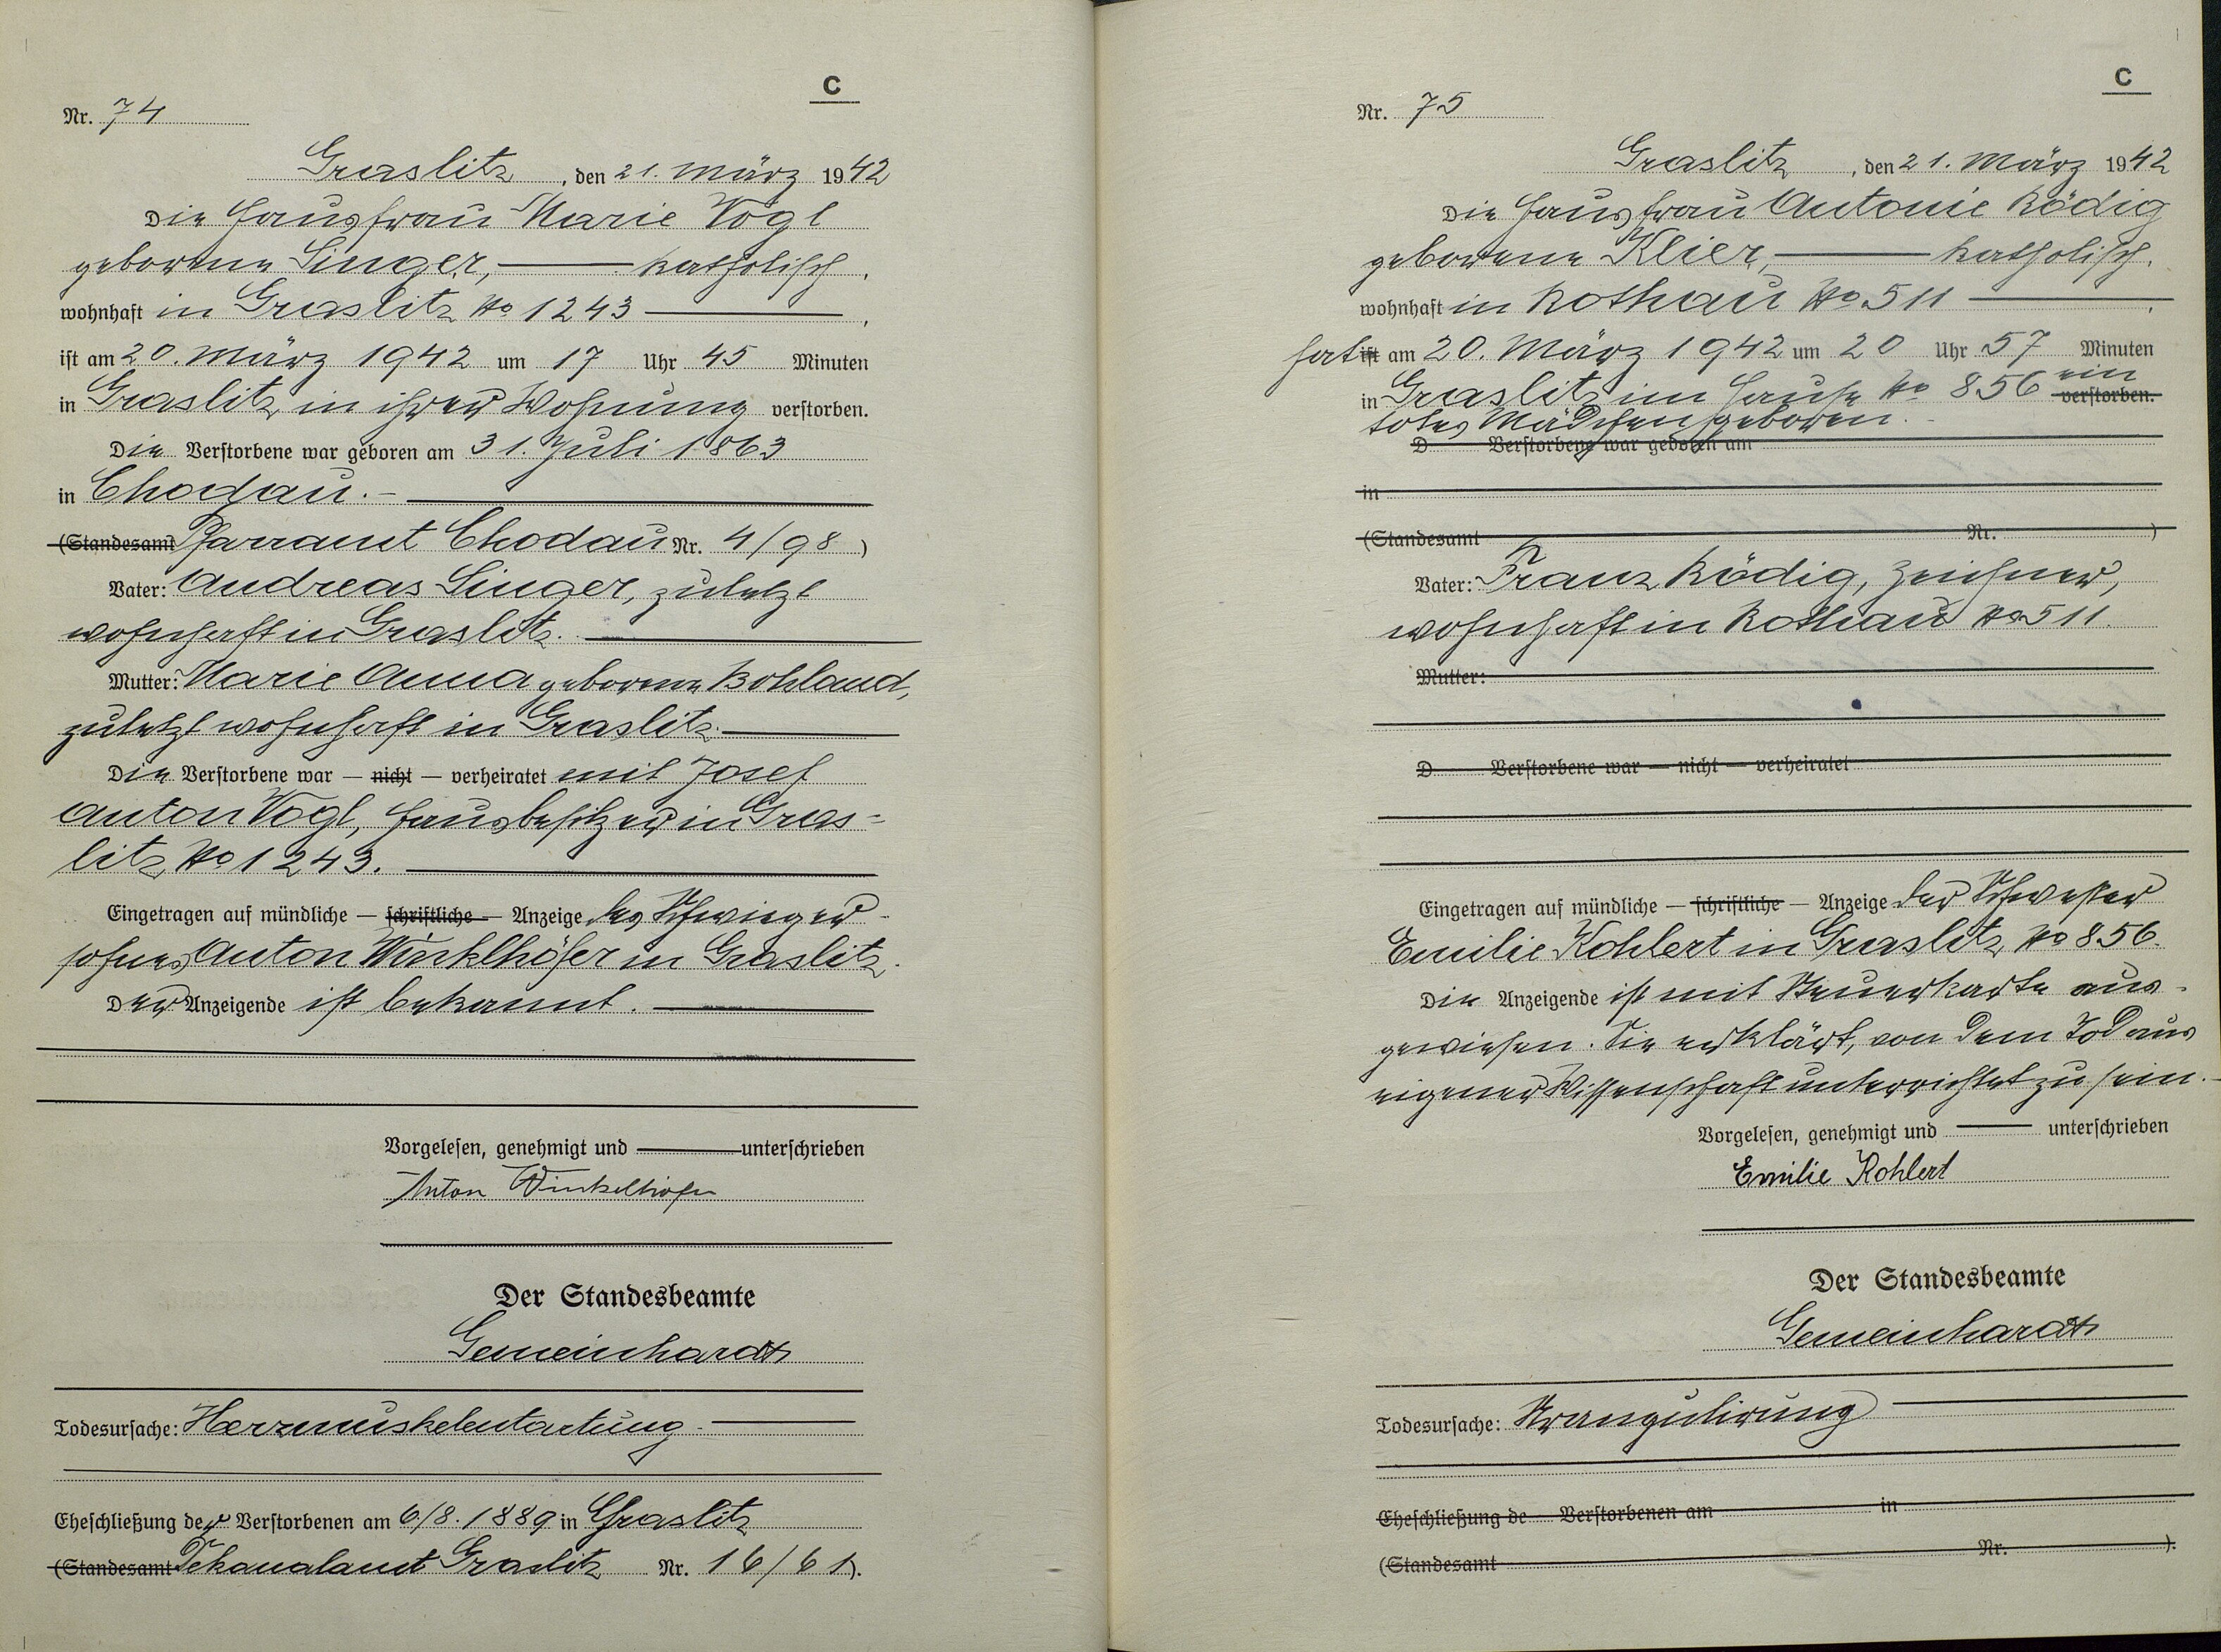 C
Nr. 74
Graslitz, den 21. März 1942
Die Hausfrau Marie Vogl
geborene Singer, — katholisch,
wohnhaft in Graslitz No 1243 —,
ist am 20. März 1942 um 17 Uhr 45 Minuten
in Graslitz in ihrer Wohnung verstorben.
Die Verstorbene war geboren am 31. Juli 1863
in Chodau. –
(Standesamt Pfarramt Chodau Nr. 4/98)
Vater: Andreas Singer, zuletzt
wohnhaft in Graslitz. —
Mutter: Marie Anna geborene Bohland,
zuletzt wohnhaft in Graslitz. —
Die Verstorbene war — nicht — verheiratet mit Josef
Anton Vogl, Hausbesitzer in Gras-
litz No 1243. —
Eingetragen auf mündliche — schriftliche — Anzeige des Schwieger-
sohnes Anton Winklhöfer in Graslitz.
Der Anzeigende ist bekannt. —
Vorgelesen, genehmigt und — unterschrieben
Anton Winkelhöfer
Der Standesbeamte
Gemeinhardt
Todesursache: Herzmuskelentartung. —
Eheschließung der Verstorbenen am 6/8. 1889 in Graslitz
(Standesamt Dekanalamt Graslitz Nr. 16/61).
C
Nr. 75
Graslitz, den 21. März 1942
Die Hausfrau Antonie Rödig
geborene Klier, — katholisch,
wohnhaft in Rothau No 511 —,
hat ist am 20. März 1942 um 20 Uhr 57 Minuten
in Graslitz im Hause No 856 ein verstorben.
totes Mädchen geboren. –
D Verstorbene war geboren am
in
(Standesamt Nr. )
Vater: Franz Rödig, Zeichner,
wohnhaft in Rothau No 511.
Mutter:
D Verstorbene war — nicht — verheiratet
Eingetragen auf mündliche — schriftliche — Anzeige der Schwester
Emilie Kohlert in Graslitz No 856.
Die Anzeigende ist mit Steuerkarte aus-
gewiesen. Sie erklärt, von dem Tod aus
eigener Wissenschaft unterrichtet zu sein. –
Vorgelesen, genehmigt und — unterschrieben
Emilie Kohlert
Der Standesbeamte
Gemeinhardt
Todesursache: Strangulirung —
Eheschließung de Verstorbenen am in
(Standesamt Nr. ).